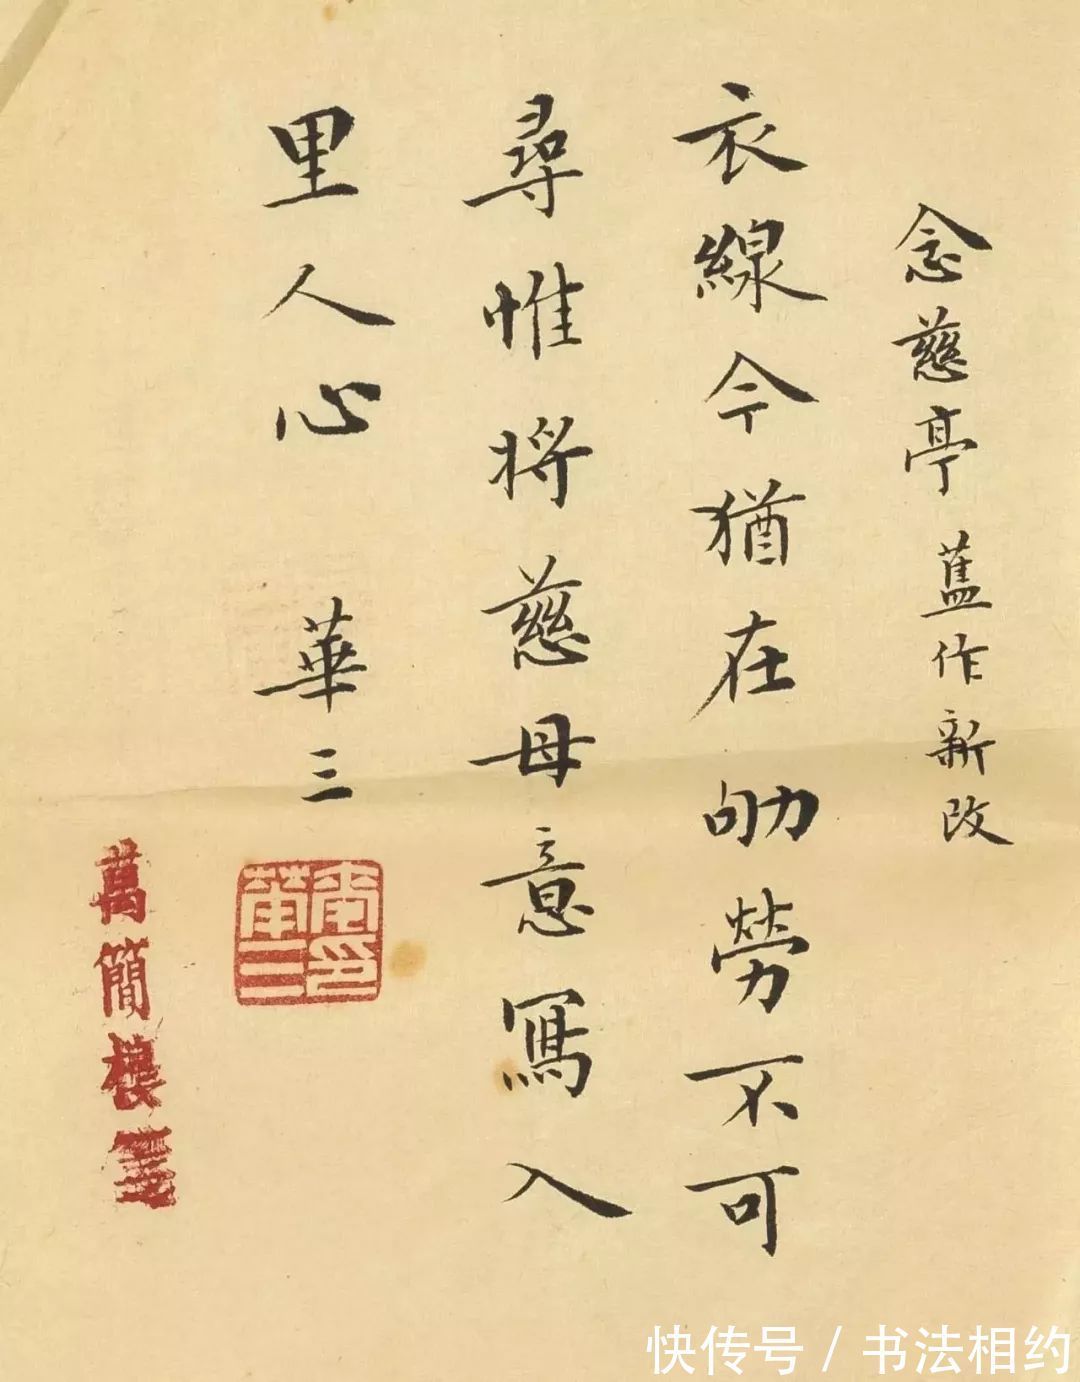 念慈亭 舊作新改
衣線今猶在劬勞不可
尋惟將慈母意寫入
里人心 華三
萬簡樓箋
快传号 / 书法相约